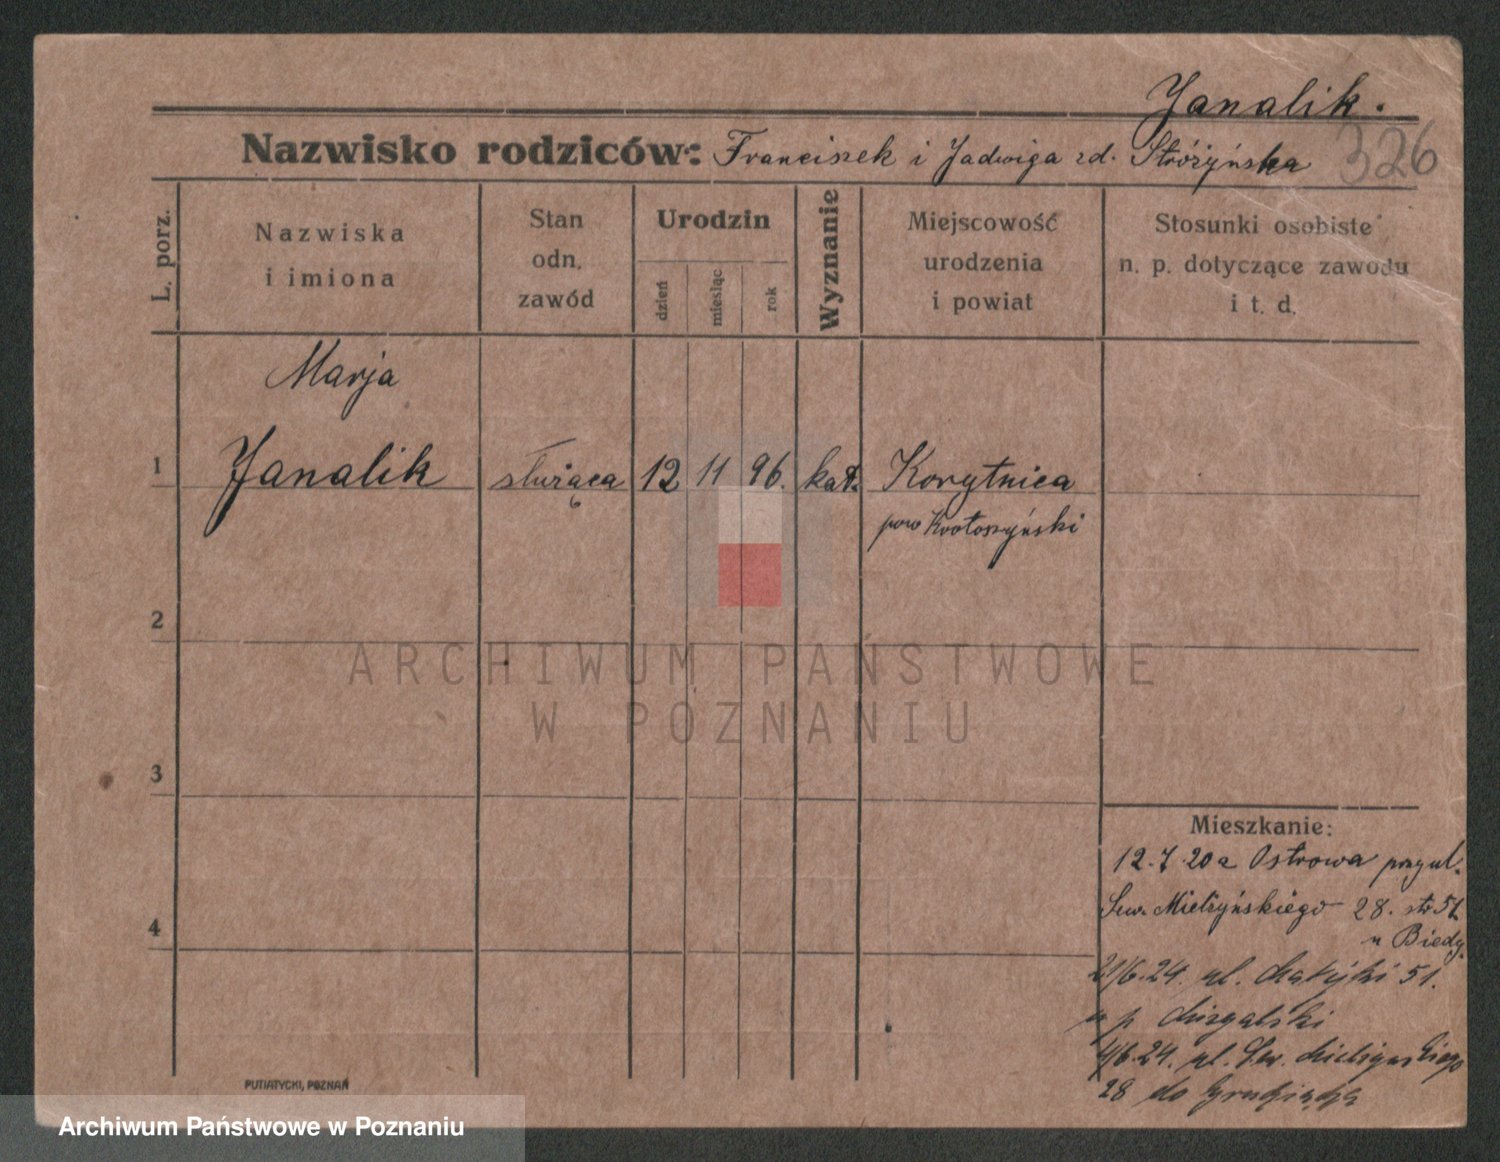 Janalik.
Nazwisko rodziców: Franciszek i Jadwiga zd. Stróżyńska 326
L. porz.
Nazwiska
i imiona
Stan
odn.
zawód
Urodzin
dzień
miesiąc
rok
Wyznanie
Miejscowość
urodzenia
i powiat
Stosunki osobiste
n. p. dotyczące zawodu
i t. d.
Marja
1 Janalik służąca 12 11 96. kat. Korytnica
pow Krotoszyński
2
ARCHIWUM PAŃSTWOWE
W POZNANIU
3
Mieszkanie:
12.7.20 a Ostrowa przyul.
Sew. Mielżyńskiego 28. str 51
4
21/6.24. ul. 51.
p
4/6.24. ul. Sew. Mielżyńskiego
28 do Grudziądza
PUTIATYCKI, POZNAŃ
Archiwum Państwowe w Poznaniu